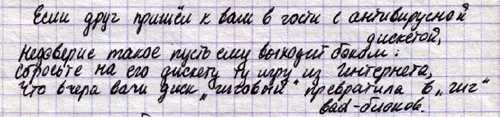 Если друг пришёл к вам в гости с антивирусной
дискетой,
Недоверие такое пусть ему выходит боком:
Сбросьте на его дискету ту игру из Интернета,
Что вчера ваш диск „гиговый“ превратила в „гиг“
bad-блоков.